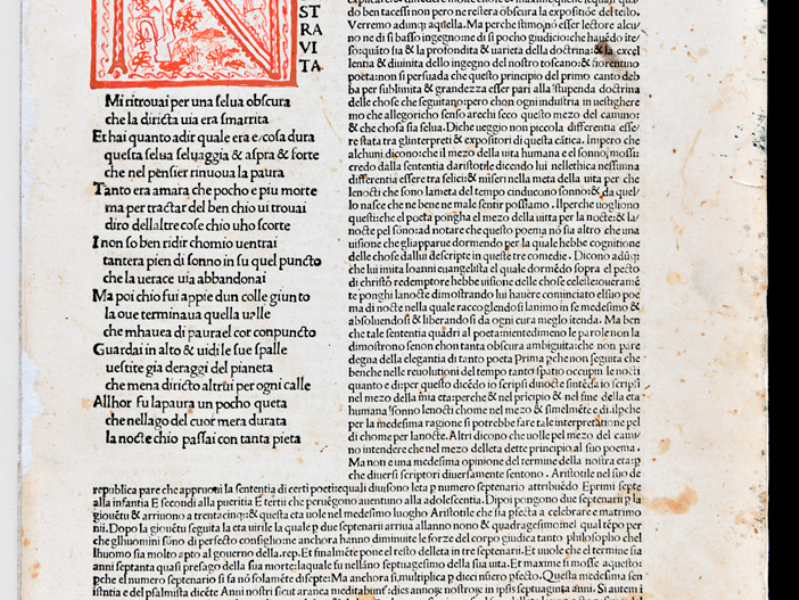 ST
RA
VI
TA
Mi ritrouai per una selua obscura
che la diricta uia era smarrita
Et hai quanto adir quale era e/cosa dura
questa selua seluaggia & aspra & forte
che nel pensier rinuoua la paura
Tanto era amara che pocho e piu morte
ma per tractar del ben chio ui trouai
diro dellaltre cose chio uho scorte
Inon so ben ridir chomio uentrai
tantera pien di sonno in su quel puncto
che la uerace uia abbandonai
Ma poi chio fui appie dun colle giunto
la oue terminaua quella ualle
che mhauea di paura el cor conpuncto
Guardai in alto & uidi le sue spalle
uestite gia deraggi del pianeta
che mena diricto altrui per ogni calle
Allhor fu lapaura un pocho queta
che nellago del cuor mera durata
la nocte chio passai con tanta pieta
do ben tacessi non pero ne restera obscura la expositiõe del testo.
Verremo adunq; aquella. Ma perche stimo,nõ esser lectore alcu/
no ne di si basso ingegno:ne di si pocho giudicio:che hauẽdo ite/
so:quãto sia & la profondita & uarieta della doctrina:& la excel
lentia & diuinita dello ingegno del nostro toscano:& fiorentino
poeta:non si persuada che questo principio del primo canto deb
ba per sublimita & grandezza esser pari alla stupenda doctrina
delle chose che seguitano:pero chon ogni industria in uestighere
mo che allegoricho senso arechi seco questo mezo del camino:
& che chosa sia selua. Diche ueggio non piccola differentia esse/
re stata tra glinterpreti & expositori di questa cãtica. Impero che
alchuni dicono:che il mezo della uita humana e el sonno:mossi:
credo dalla sententia daristotile dicendo lui nellethica nessuna
differentia essere tra felici:& miseri nella meta della uita per che
lenocti che sono lameta del tempo cinducono sonno:& da quel/
lo nasce che ne bene ne male sentir possiamo. Ilperche uogliono
questi:che el poeta pongha el mezo della uitta per la nocte:& la/
nocte pel sõno:ad notare che questo poema nõ sia altro che una
uisione che gliapparue dormendo per la quale hebbe cognitione
delle chose dallui descripte in queste tre comedie. Dicono adũq;
che lui imita Ioanni euangelista el quale dormẽdo sopra el pecto
di christo redemptore hebbe uisione delle chose celeste:oueramẽ
te ponghi lanocte dimostrando lui hauere cominciato elsuo poe
ma di nocte nella quale raccoglendosi lanimo in se medesimo &
absoluendosi & liberando si da ogni cura meglo itenda. Ma ben
che tale sententia quadri al poeta:nientedimeno le parole non la
dimostrono senon chon tanta obscura ambiguita:che non pare
degna della elegantia di tanto poeta Prima pche non seguita che
benche nelle reuolutioni del tempo tanto spatio occupin le nocti
quanto e di:per questo dicẽdo io scripsi dinocte sintẽda io scripsi
nel mezo della mia eta:perche & nel pricipio & nel fine della eta
humana sonno lenocti chome nel mezo & similmẽte e di.ilpche
per la medesima ragione si potrebbe fare tale interpretatione pel
di chome per lanocte. Altri dicono che uolle pel mezo del cami/
no intendere che nel mezo delleta dette principio al suo poema.
Ma non e una medesima opinione del termine della nostra eta:p
che diuersi scriptori diuersamente sentono. Aristotile nel suo de
republica pare che appruoui la sententia di certi poeti:e quali diuisono leta p numero septenario attribuẽdo E primi septe
alla infantia E secondi alla pueritia E tertii che peruẽgono auentuno alla adolescentia. Dipoi pongono due septenarii p la
giouẽtu & arriuono a trentacinq;:& questa eta uole nel medesimo luogho Aristotile che sia pfecta a celebrare e matrimo
nii. Dopo la giouẽtu seguita la eta uirile la quale p due septenarii arriua allanno nono & quadragesimo:nel qual tẽpo per
che glhuomini sono di perfecto consiglio:ne anchora hanno diminuite le forze del corpo giudica tanto philosopho chel
lhuomo sia molto apto al gouerno della.rep.Et finalmẽte pone el resto delleta in tre septenarii. Et uuole che el termine sia
anni septanta quasi presago della sua morte:laquale fu nellãno septuagesimo della sua uita. Et maxime si mosse aquesto:
pche el numero septenario si fa nõ solamẽte di septe:Ma anchora si,multiplica p dieci nũero pfecto. Questa medesima sen
tẽntia e del psalmista dicẽte Anni nostri sicut aranea meditabunṫ:dies annoꝝ nostroꝝ in ipsis septuaginta anni. Si autem i